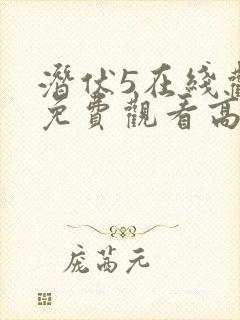 潛伏5在綫觀
免費觀看高
庞茜元